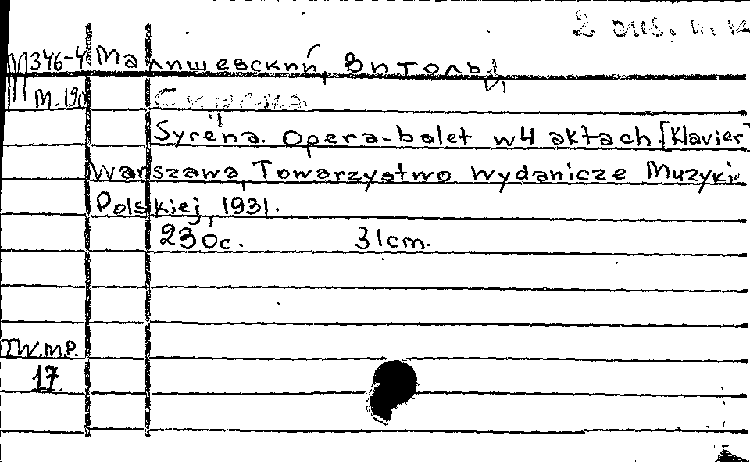 2 опис.
М346-4 Малишевский, Витольд
М-190
Syrena. Opera-balet w 4 aktach [Klavier
Warszawa, Towarzystwo Wydanicze Muzyki
Polskiej, 1931.
230c. 31cm.
TW.M.P.
17